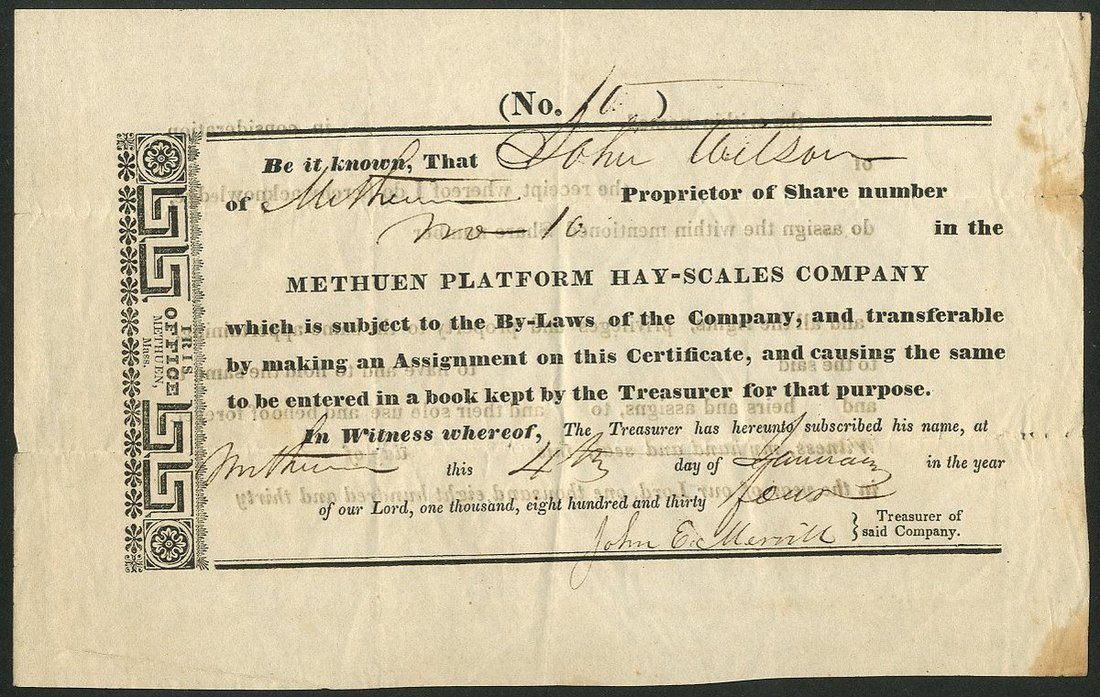 (No. 16)
Be it known, That John Wilson
of Methuen Proprietor of Share number
No 16 in the
METHUEN PLATFORM HAY-SCALES COMPANY
which is subject to the By-Laws of the Company, and transferable
by making an Assignment on this Certificate, and causing the same
to be entered in a book kept by the Treasurer for that purpose.
In Witness whereof, The Treasurer has hereunto subscribed his name, at
Methuen this 4th day of January in the year
of our Lord, one thousand, eight hundred and thirty four
John E. Merrill } Treasurer of
said Company.
IRIS
OFFICE
METHUEN,
Mass.